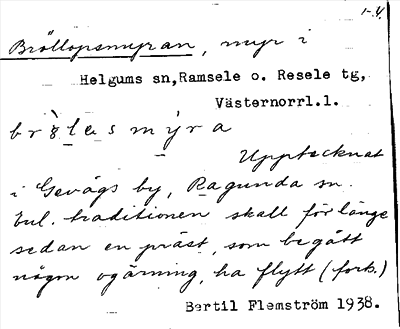 1-4.
Bröllopsmyran, myr i
Helgums sn, Ramsele o. Resele tg,
Västernorrl.l.
brö̀les mýra
Upptecknat
i Gevågs by, Ragunda sn.
Enl. traditionen skall för länge
sedan en präst, som begått
någon ogärning, ha flytt (forts.)
Bertil Flemström 1938.